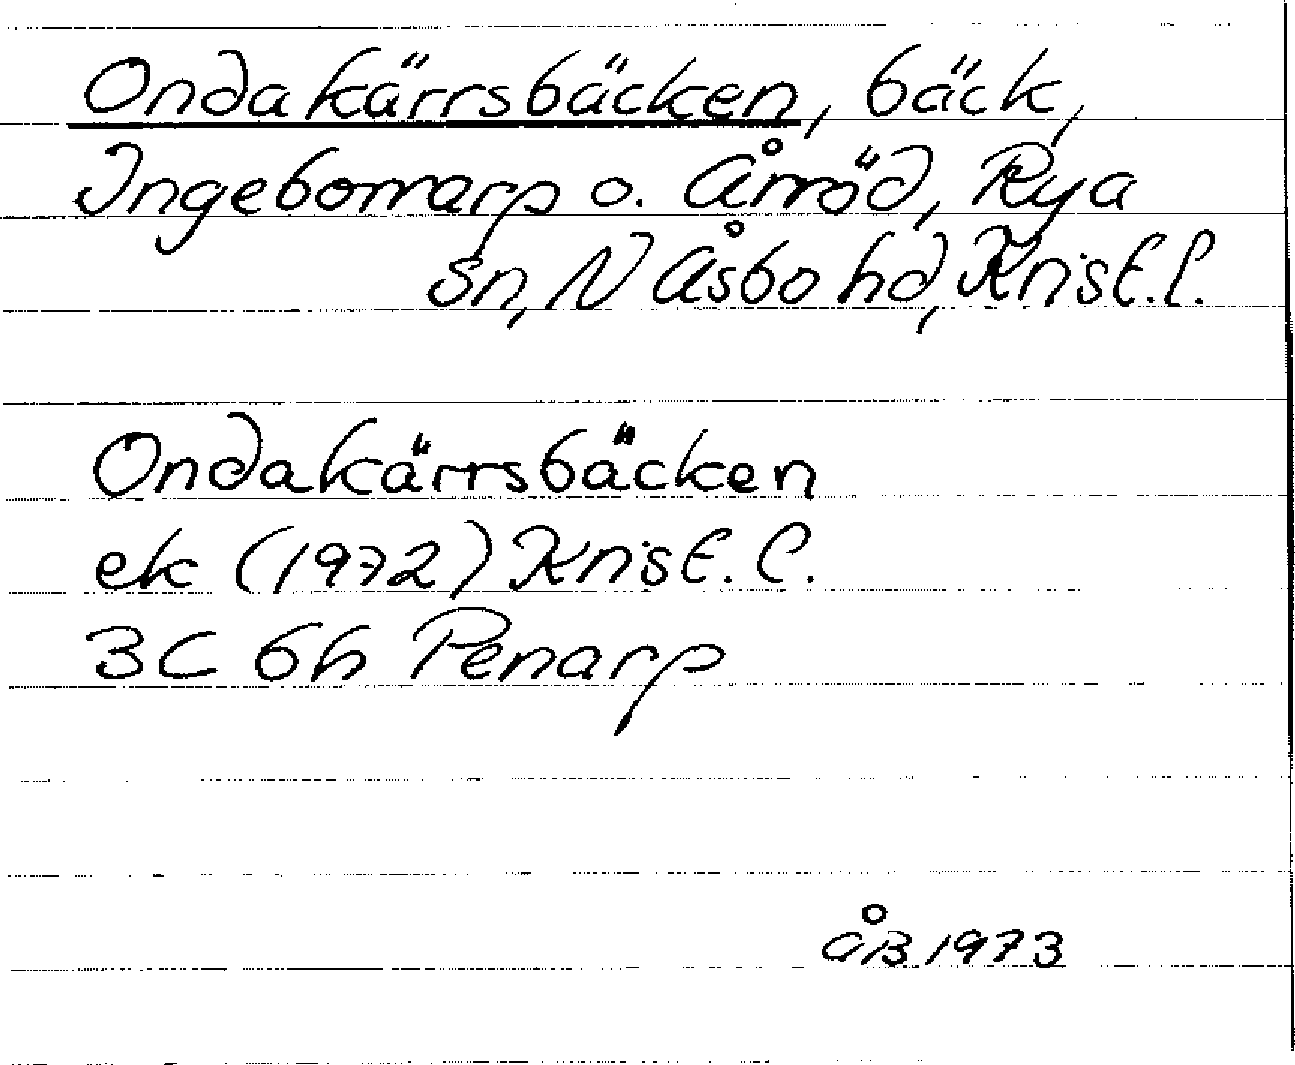 Ondakärrsbäcken, bäck,
Ingeborrarp o. Årröd, Rya
sn, N Åsbo hd, Krist. l.
Ondakärrsbäcken
ek (1972) Krist. l.
3C 6h Penarp
ÅB 1973